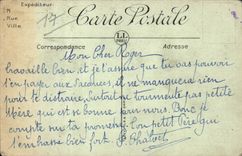 Expéditeur
M
Rue
Ville
17
Carte Postale
Correspondance
LL
Adresse
Mon Cher Roger
travaille bien et je t'assure que tu vas pouvoir
t'en passer aux vacances, il ne manquera rien
pour te distraire, surtout ne tourmente pas petite
Mère qui est si bonne pour nous. Donc je
compte sur ta promesse. Ton petit Père qui
t'embrasse bien fort.